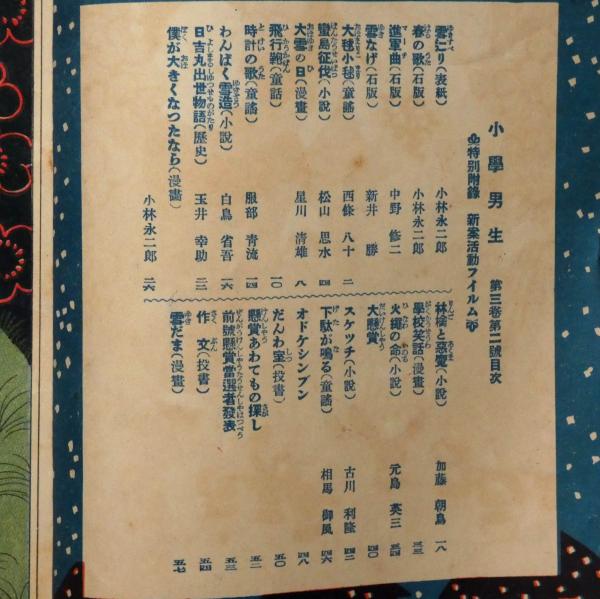 小學男生 第三卷第二號目次
特別附錄 新案活動フイルム
雪にり(表紙) 小林永二郎
春の歌(石版) 小林永二郎
進軍曲(石版) 中野修二
雪なげ(石版) 新井勝
大毬小毬(童謠) 西條八十 二
蠻島征伐(小說) 松山思水 四
大雪の日(漫畫) 星川清雄 八
飛行鞄(童話) 一〇
時計の歌(童謠) 服部靑流 一四
わんぱく雪造(小說) 白鳥省吾 一六
日吉丸出世物語(歷史) 玉井幸助 二二
僕が大きくなつたなら(漫畫) 小林永二郎 二六
林檎と惡魔(小說) 加藤朝鳥 二八
學校笑話(漫畫) 三三
火繩の命(小說) 元島英三 三四
大懸賞 四〇
スケツチ(小說) 古川利隆 四二
下駄が鳴る(童謠) 相馬御風 四六
オドケシンブン 四八
だんわ室(投書) 五〇
懸賞あわてもの探し 五二
前號懸賞當選者發表 五三
作文(投書) 五四
雪だま(漫畫) 五七